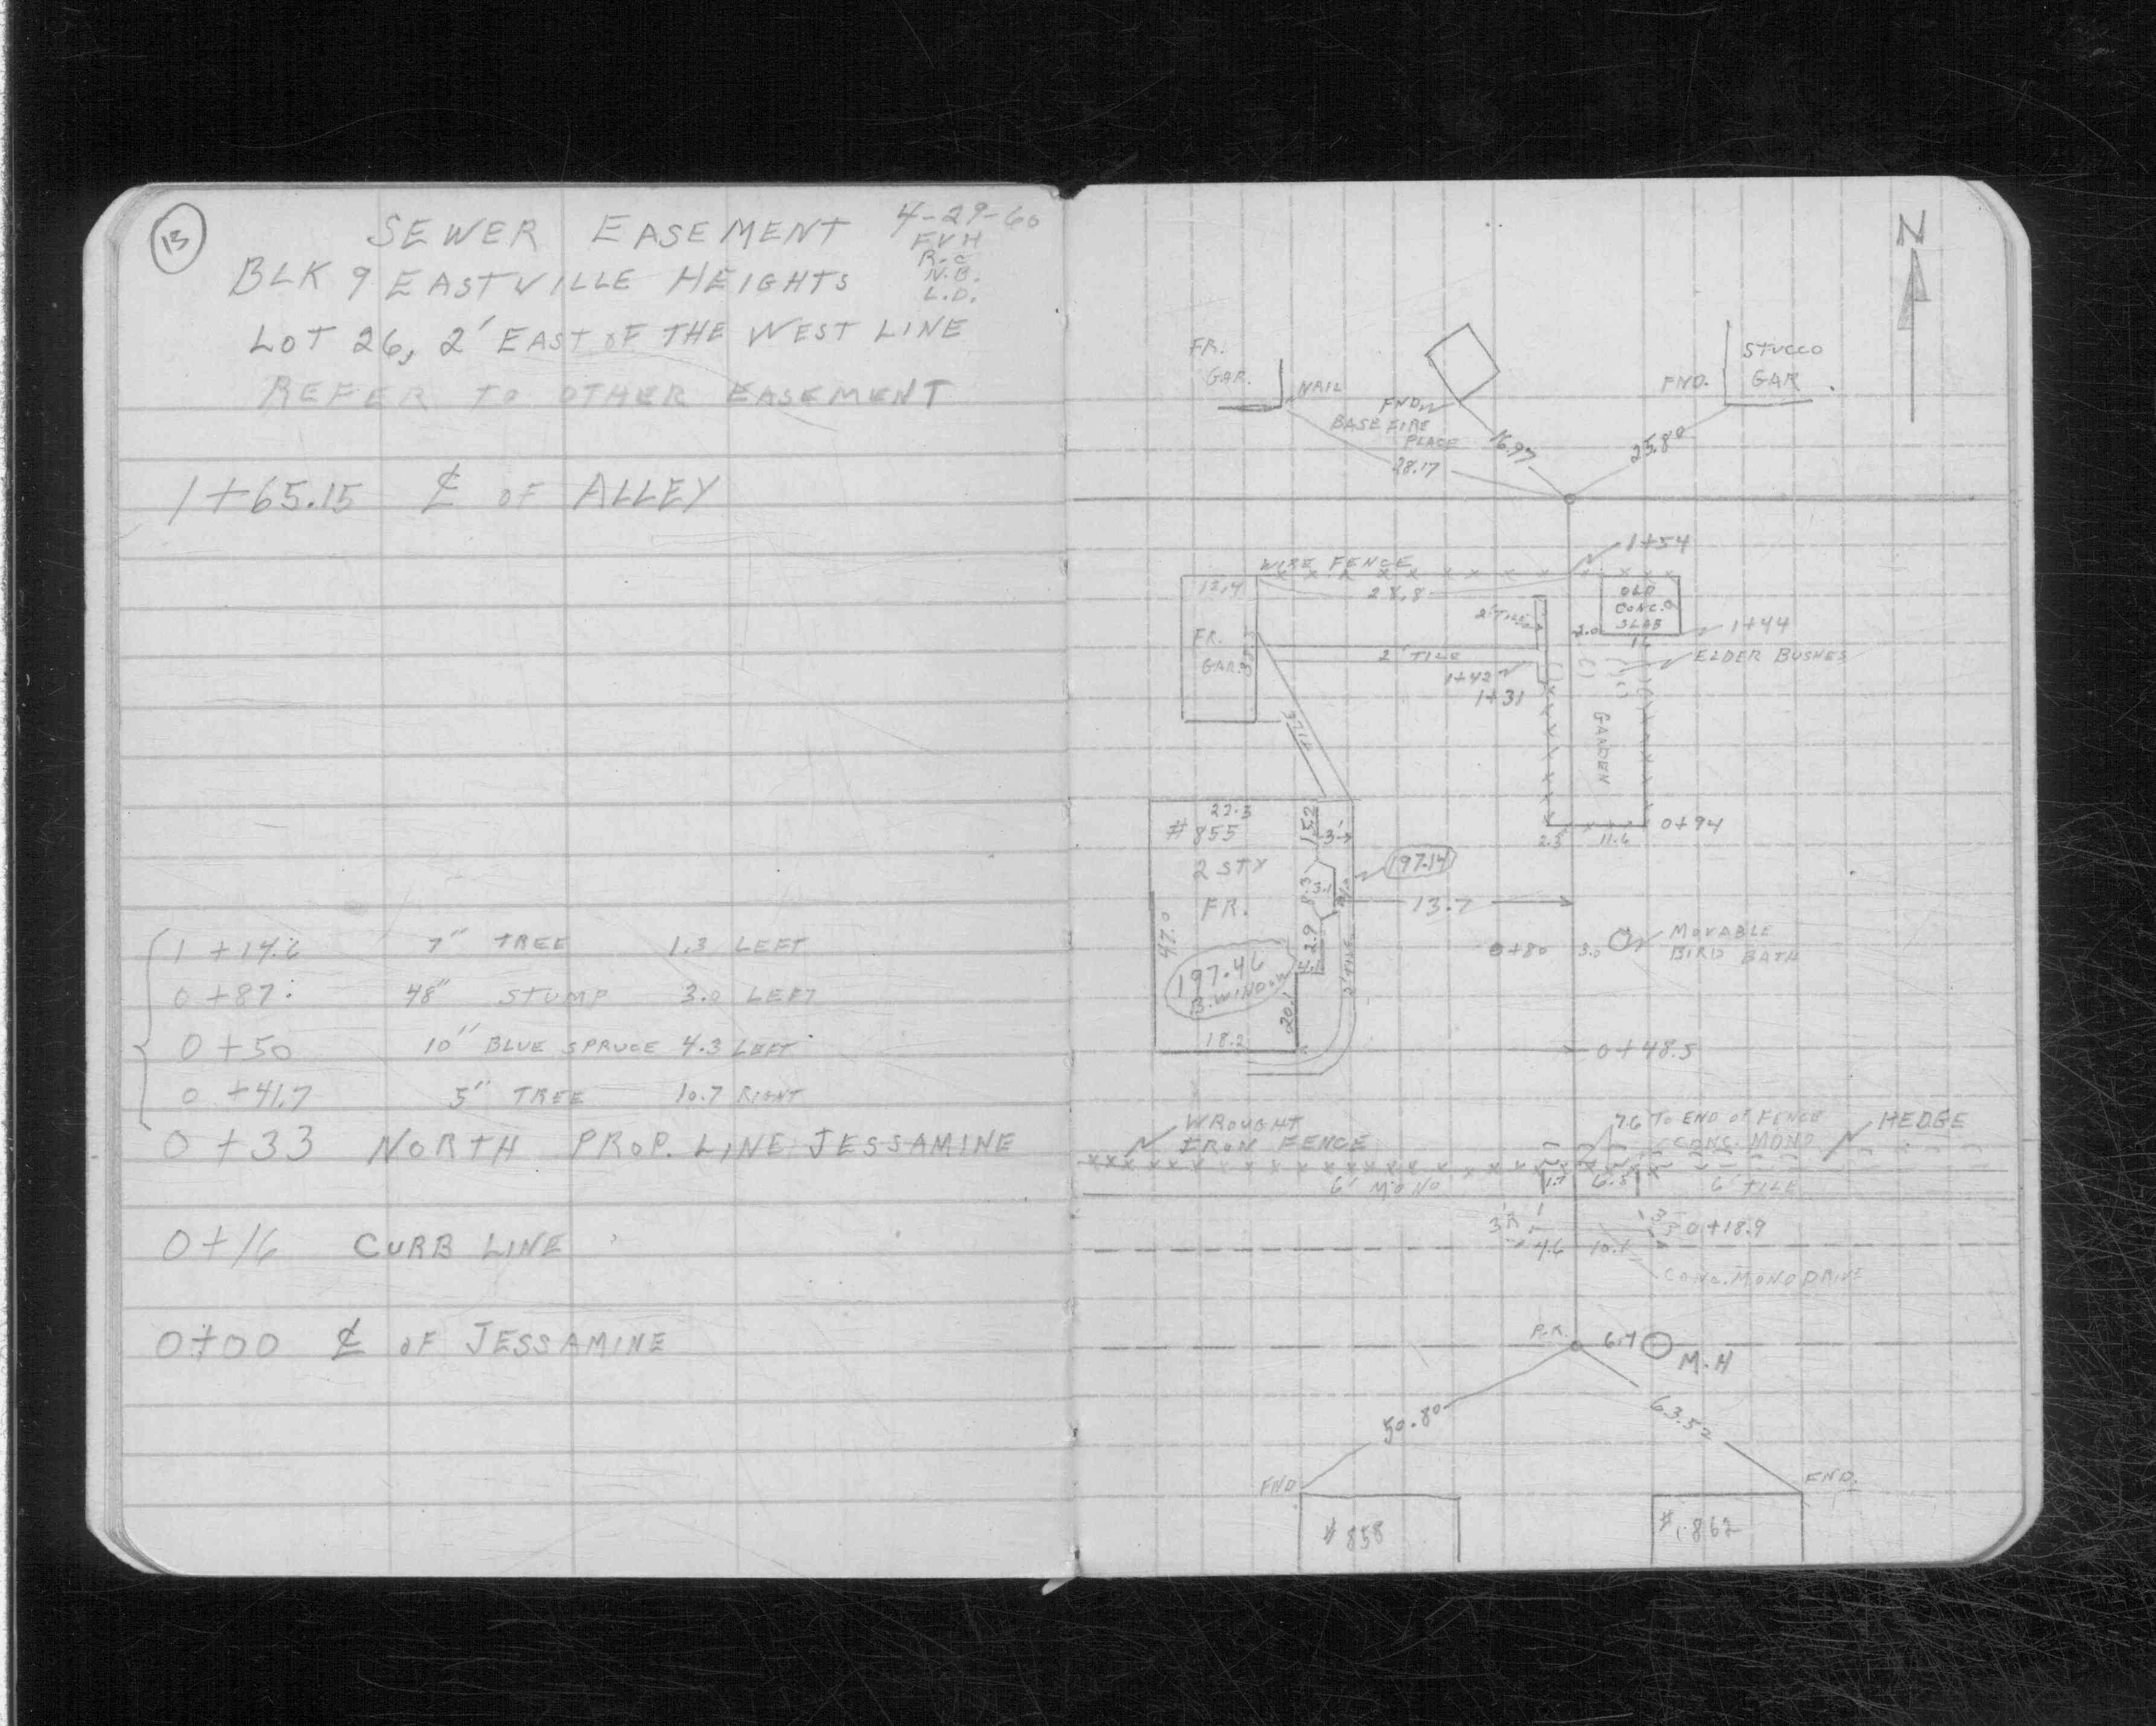 13
SEWER EASEMENT 4-29-60
FVH
R.C
N.B.
L.D.
BLK 9 EASTVILLE HEIGHTS
LOT 26, 2' EAST OF THE WEST LINE
REFER TO OTHER EASEMENT
1+65.15 ℄ OF ALLEY
1+14.6 7" TREE 1.3 LEFT
0+87 48" STUMP 3.0 LEFT
0+50 10" BLUE SPRUCE 4.3 LEFT
0+41.7 5" TREE 10.7 RIGHT
0+33 NORTH PROP. LINE JESSAMINE
0+16 CURB LINE
0+00 ℄ OF JESSAMINE
N
FR.
GAR.
NAIL
FND.
BASE FIRE
PLACE
FND.
STUCCO
GAR.
28.17
16.97
25.80
1+54
WIRE FENCE
12.4
28.8
2' TILE
OLD
CONC.
SLAB
2.0
1+44
16
FR.
GAR.
2' TILE
ELDER BUSHES
1+42
1+31
GARDEN
22.3
#855
2 STY
FR.
15.2
3'
0+94
2.5
11.6
197.14
8.3
3.1
13.7
47.0
2.9
4.1
2' TILE
0+80 3.0
MOVABLE
BIRD BATH
197.46
B. WINDOW
20.1
18.2
0+48.5
WROUGHT
IRON FENCE
7.6 TO END OF FENCE
CONC. MONO
HEDGE
6' MONO
1.7
6.5
6' TILE
3'R
3'
0+18.9
4.6
10.1
CONC. MONO DRIVE
P.K.
6.4
M.H
50.80
63.52
FND
FND.
#858
#862